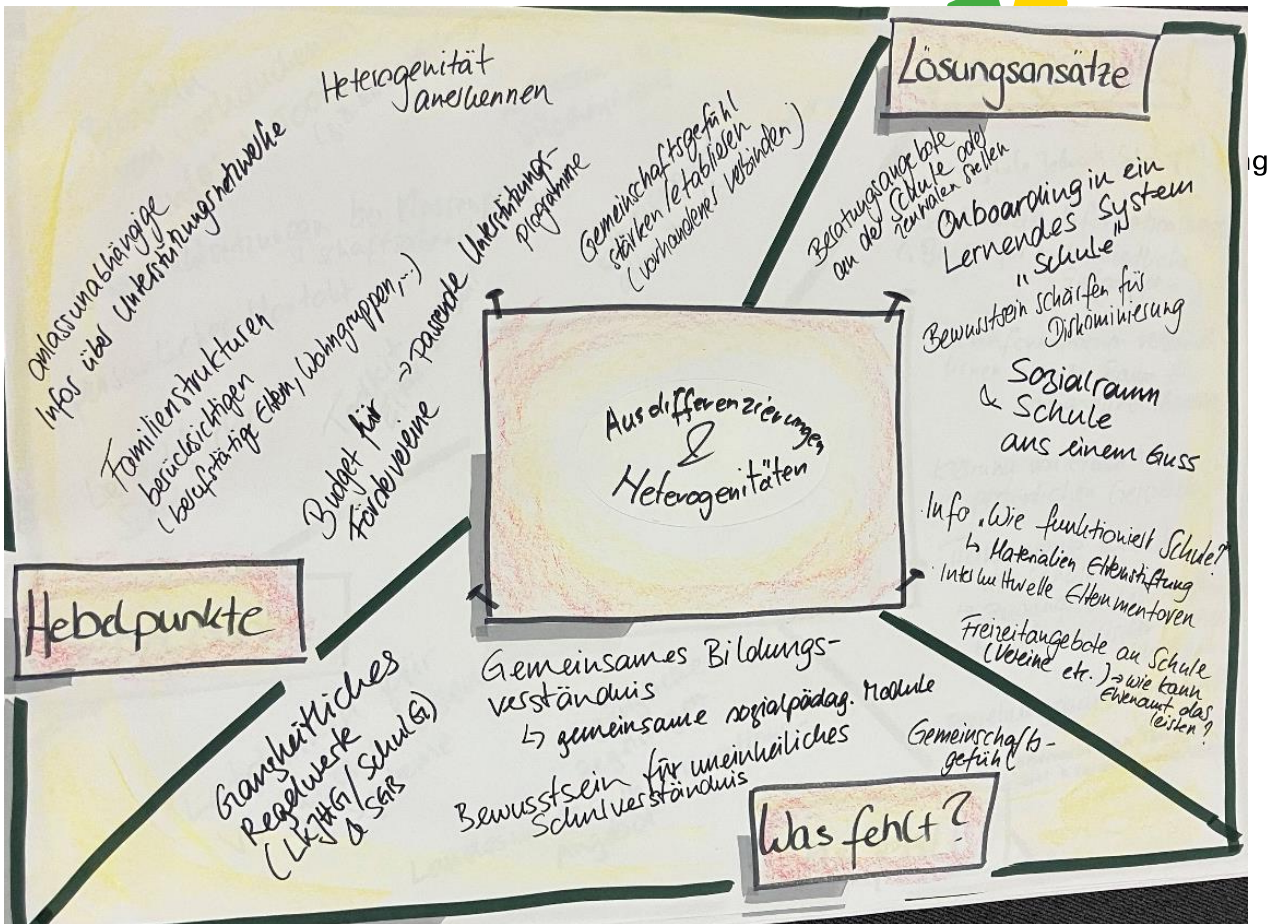 Ausdifferenzierungen
&
Heterogenitäten
Hebelpunkte
Heterogenität
anerkennen
anlassunabhängige
Infos über Unterstützungsnetzwerke
Familienstrukturen
berücksichtigen
(berufstätige Eltern, Wohngruppen,...)
Budget für → passende Unterstützungs-
programme
Fördervereine
Gemeinschaftsgefühl
stärken/etablieren
(vorhandenes verbinden)
Lösungsansätze
Beratungsangebote
an der Schule oder
zentralen Stellen
Onboarding in ein
Lernendes System
"Schule"
Bewusstsein schärfen für
Diskominierung
Sozialraum
& Schule
aus einem Guss
· Info „Wie funktioniert Schule?"
↳ Materialien Elternstiftung
· Interkulturelle Elternmentoren
Freizeitangebote an Schule
(Vereine etc.) → wie kann
Ehrenamt das
leisten?
Was fehlt?
Ganzheitliches
Regelwerk
(LKJHG/SchulG)
& SGB
Gemeinsames Bildungs-
verständnis
↳ gemeinsame sozialpädag. Module
Bewusstsein für uneinheiliches
Schulverständnis
Gemeinschafts-
gefühl
g